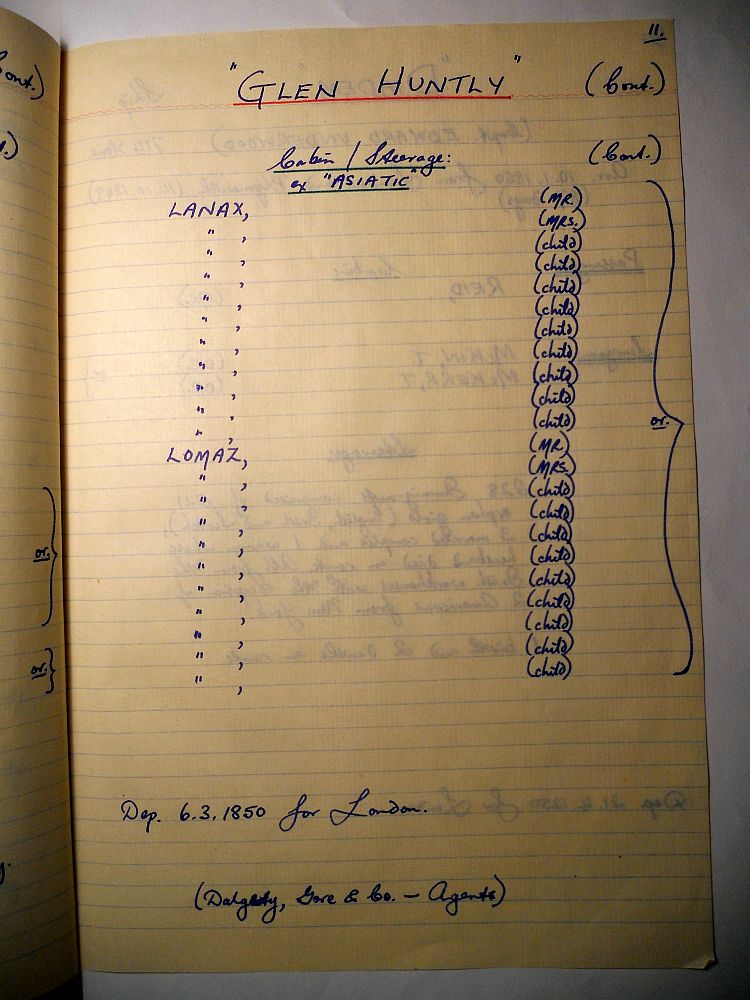 11.
"GLEN HUNTLY" (Cont.)
Cabin / Steerage: (Cont.)
ex "ASIATIC"
LANAX, (MR.)
" , (MRS.)
" , (child)
" , (child)
" , (child)
" , (child)
" , (child)
" , (child)
" , (child)
" , (child)
" , (child)
or.
LOMAZ, (MR.)
" , (MRS.)
" , (child)
" , (child)
" , (child)
" , (child)
" , (child)
" , (child)
" , (child)
" , (child)
" , (child)
or.
or.
Dep. 6.3.1850 for London.
(Dalgety, Gore & Co. — Agents)